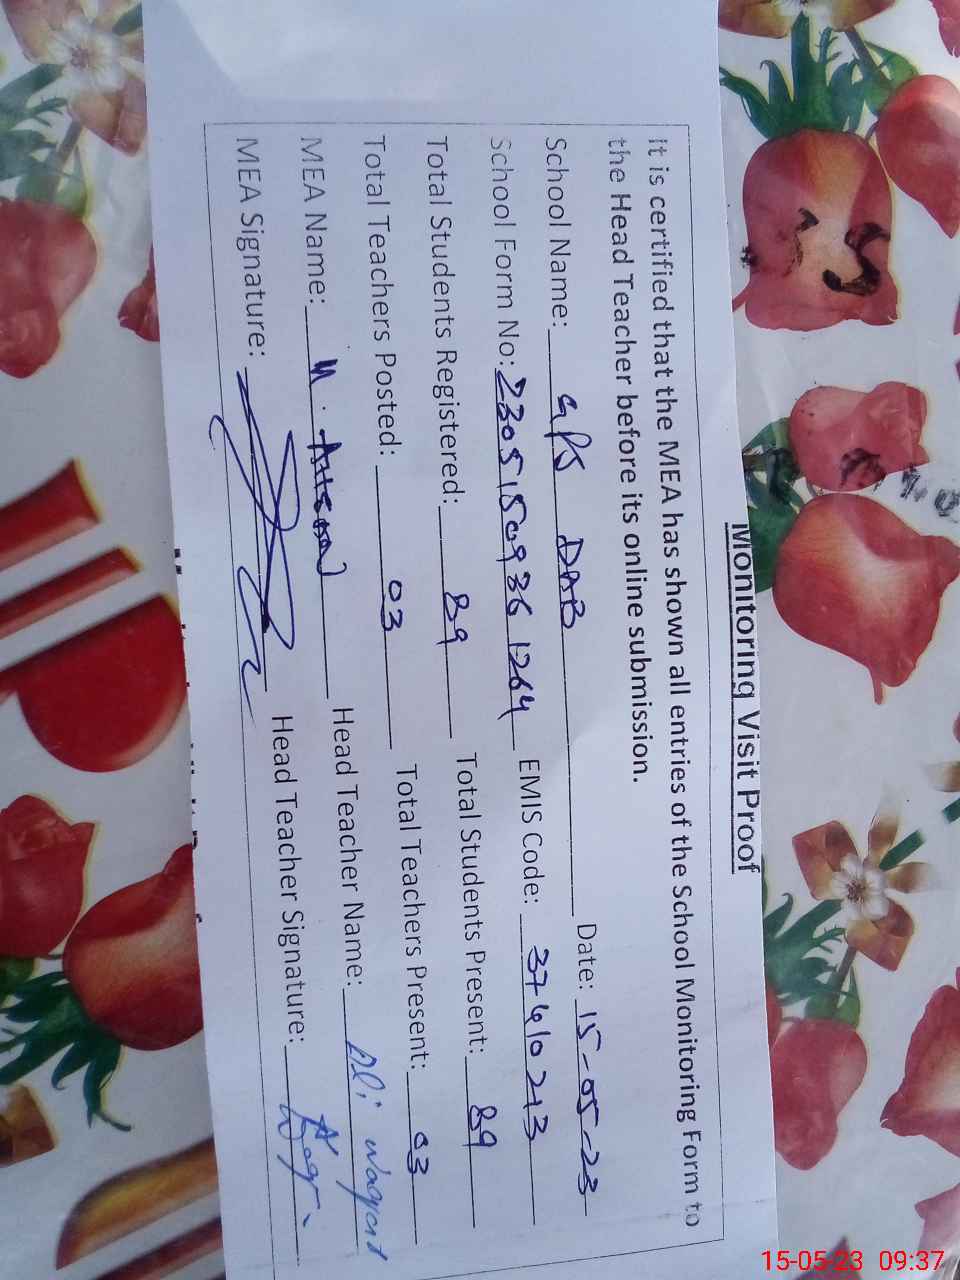 Monitoring Visit Proof
It is certified that the MEA has shown all entries of the School Monitoring Form to
the Head Teacher before its online submission.
School Name: GPS DAB Date: 15-05-23
School Form No: 23051509361264 EMIS Code: 37410213
Total Students Registered: 89 Total Students Present: 89
Total Teachers Posted: 03 Total Teachers Present: 03
MEA Name: M. Head Teacher Name: Ali Waqar
MEA Signature: Head Teacher Signature:
15-05-23 09:37